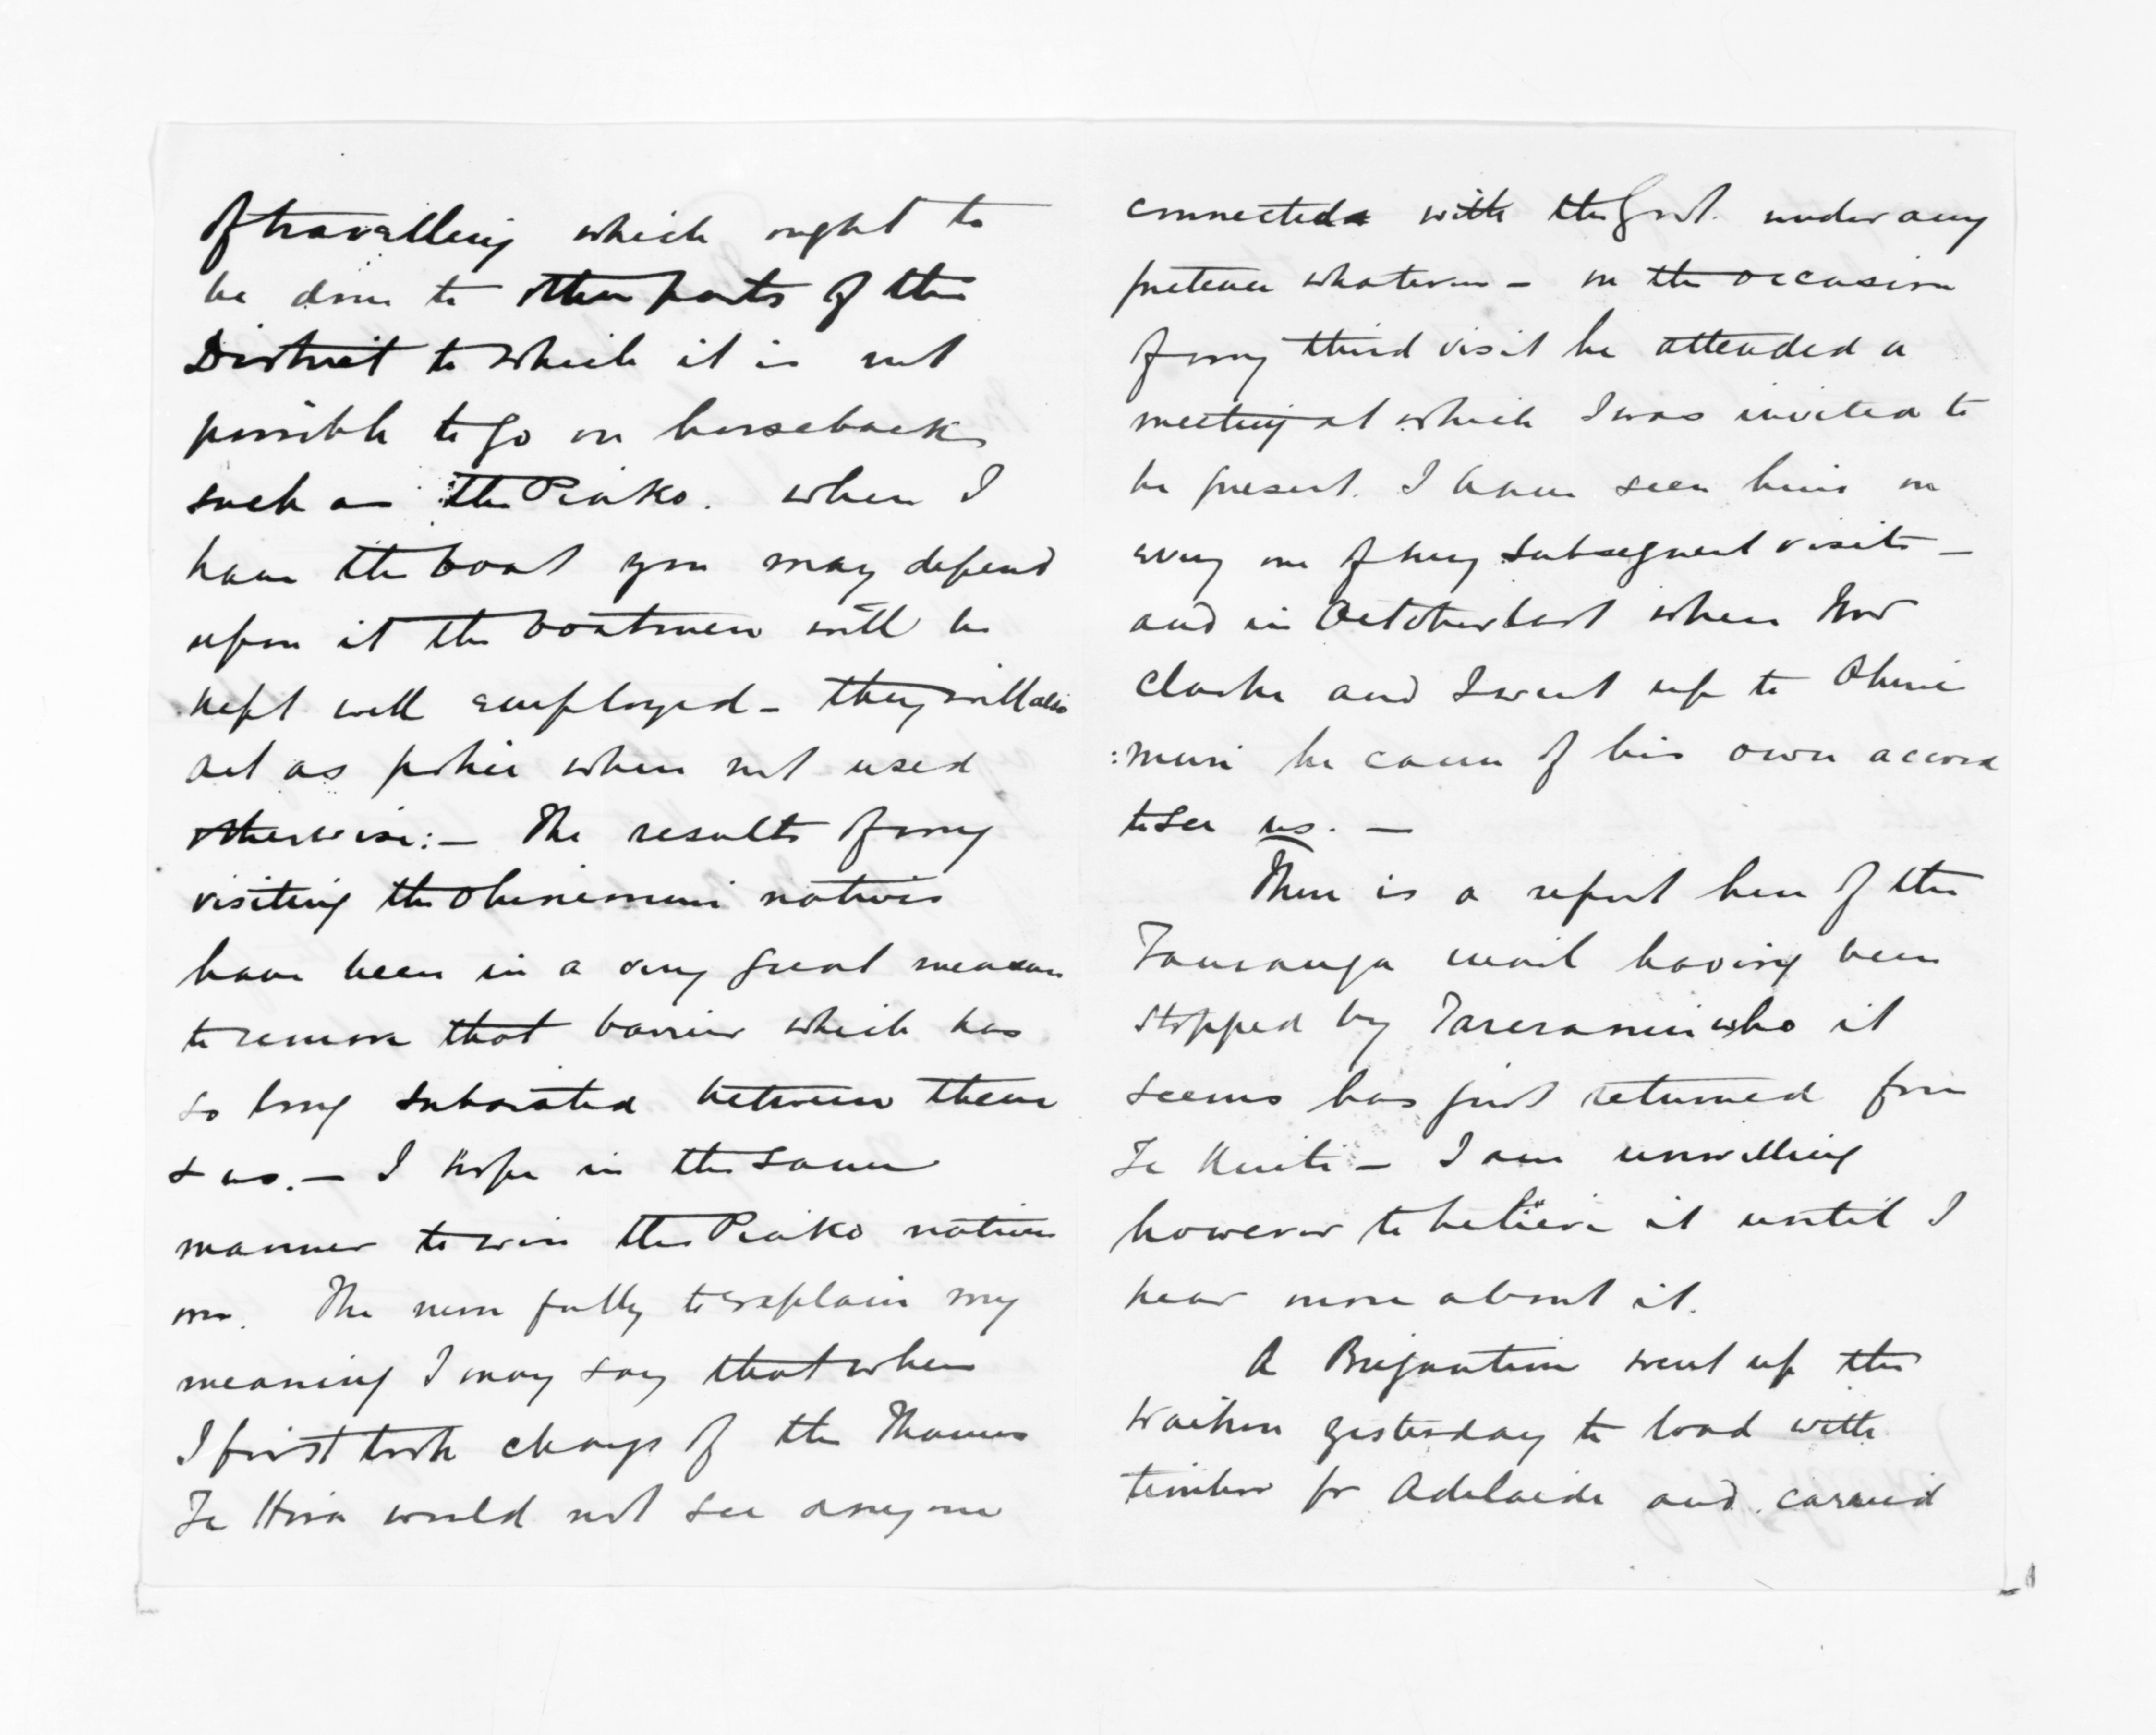 of travelling which ought to
be done to other parts of the
District to which it is not
possible to go on horseback,
such as the Piako. when I
have the boat you may depend
upon it the boatmen will be
kept well employed - they will also
act as police when not used
otherwise:- The results of my
visiting the Ohinemuri natives
have been in a very great measure
to remove that barrier which has
so long subsisted between them
& us. - I hope in the same
manner to win the Piako natives
over. The more fully to explain my
meaning I may say that when
I first took charge of the Thames
Te Hira would not see anyone
connected with the Govt. under any
pretence whatever - on the occasion
of my third visit he attended a
meeting at which I was invited to
be present. I have seen him on
every one of my subsequent visits -
and in October last when
Clarke and I went up to Ohine
:muri he came of his own accord
to see us. -
There is a report here of the
Tauranga mail having been
stopped by who it
seems has just returned from
Te Kuiti - I am unwilling
however to believe it until I
hear more about it.
A Brigantine went up the
Waihou yesterday to load with
timber for Adelaide and carried